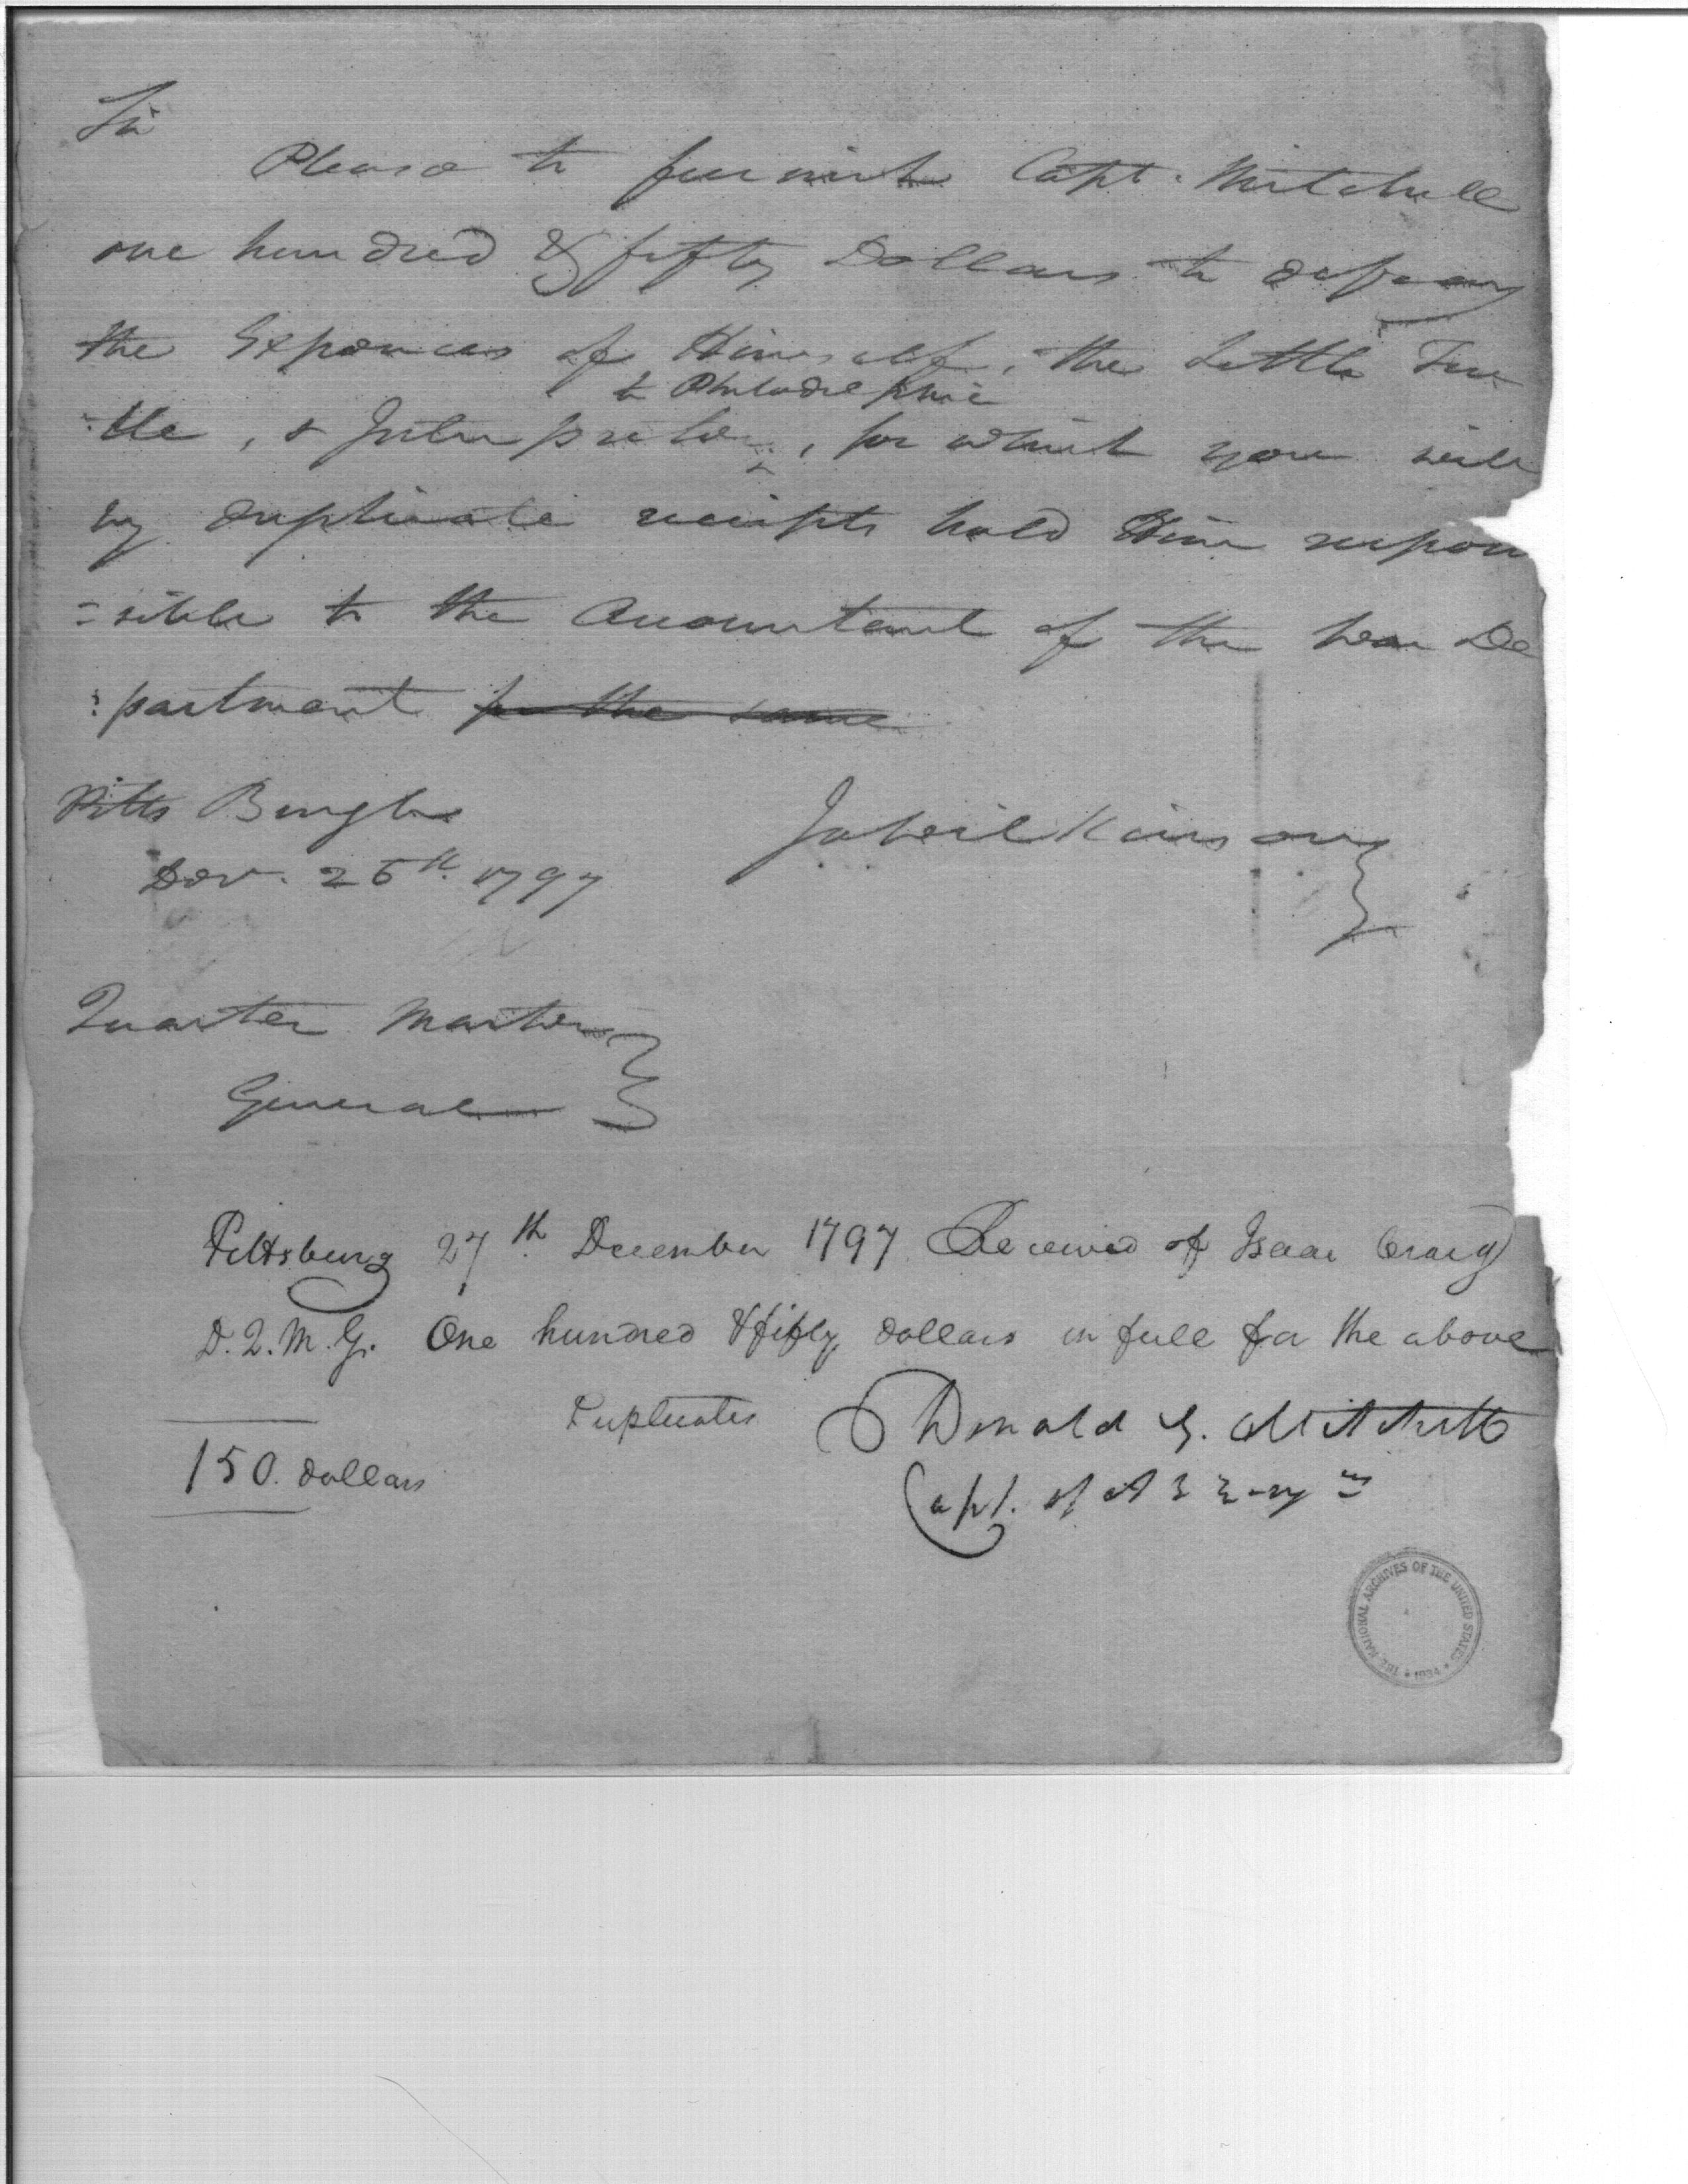 Sir
Please to furnish Capt. Mitchell
one hundred & fifty Dollars to defray
the Expences of Himself, the Little Tur
to Philadelphia
:tle, & Interpreter, for which you will
by duplicate receipts hold Him respon
=sible to the Accountant of the War De
:partment for the same
Pitts Burgh
Jа Wilkinson
25th. 1797
Quarter Master
General
Pittsburg 27th December 1797 Received of Isaac Craig
D.Q.M.G. One hundred & fifty dollars in full for the above
Duplicates Donald G. Mitchell
150. dollars
Capt. of A & Eng
THE NATIONAL ARCHIVES OF THE UNITED STATES
1934